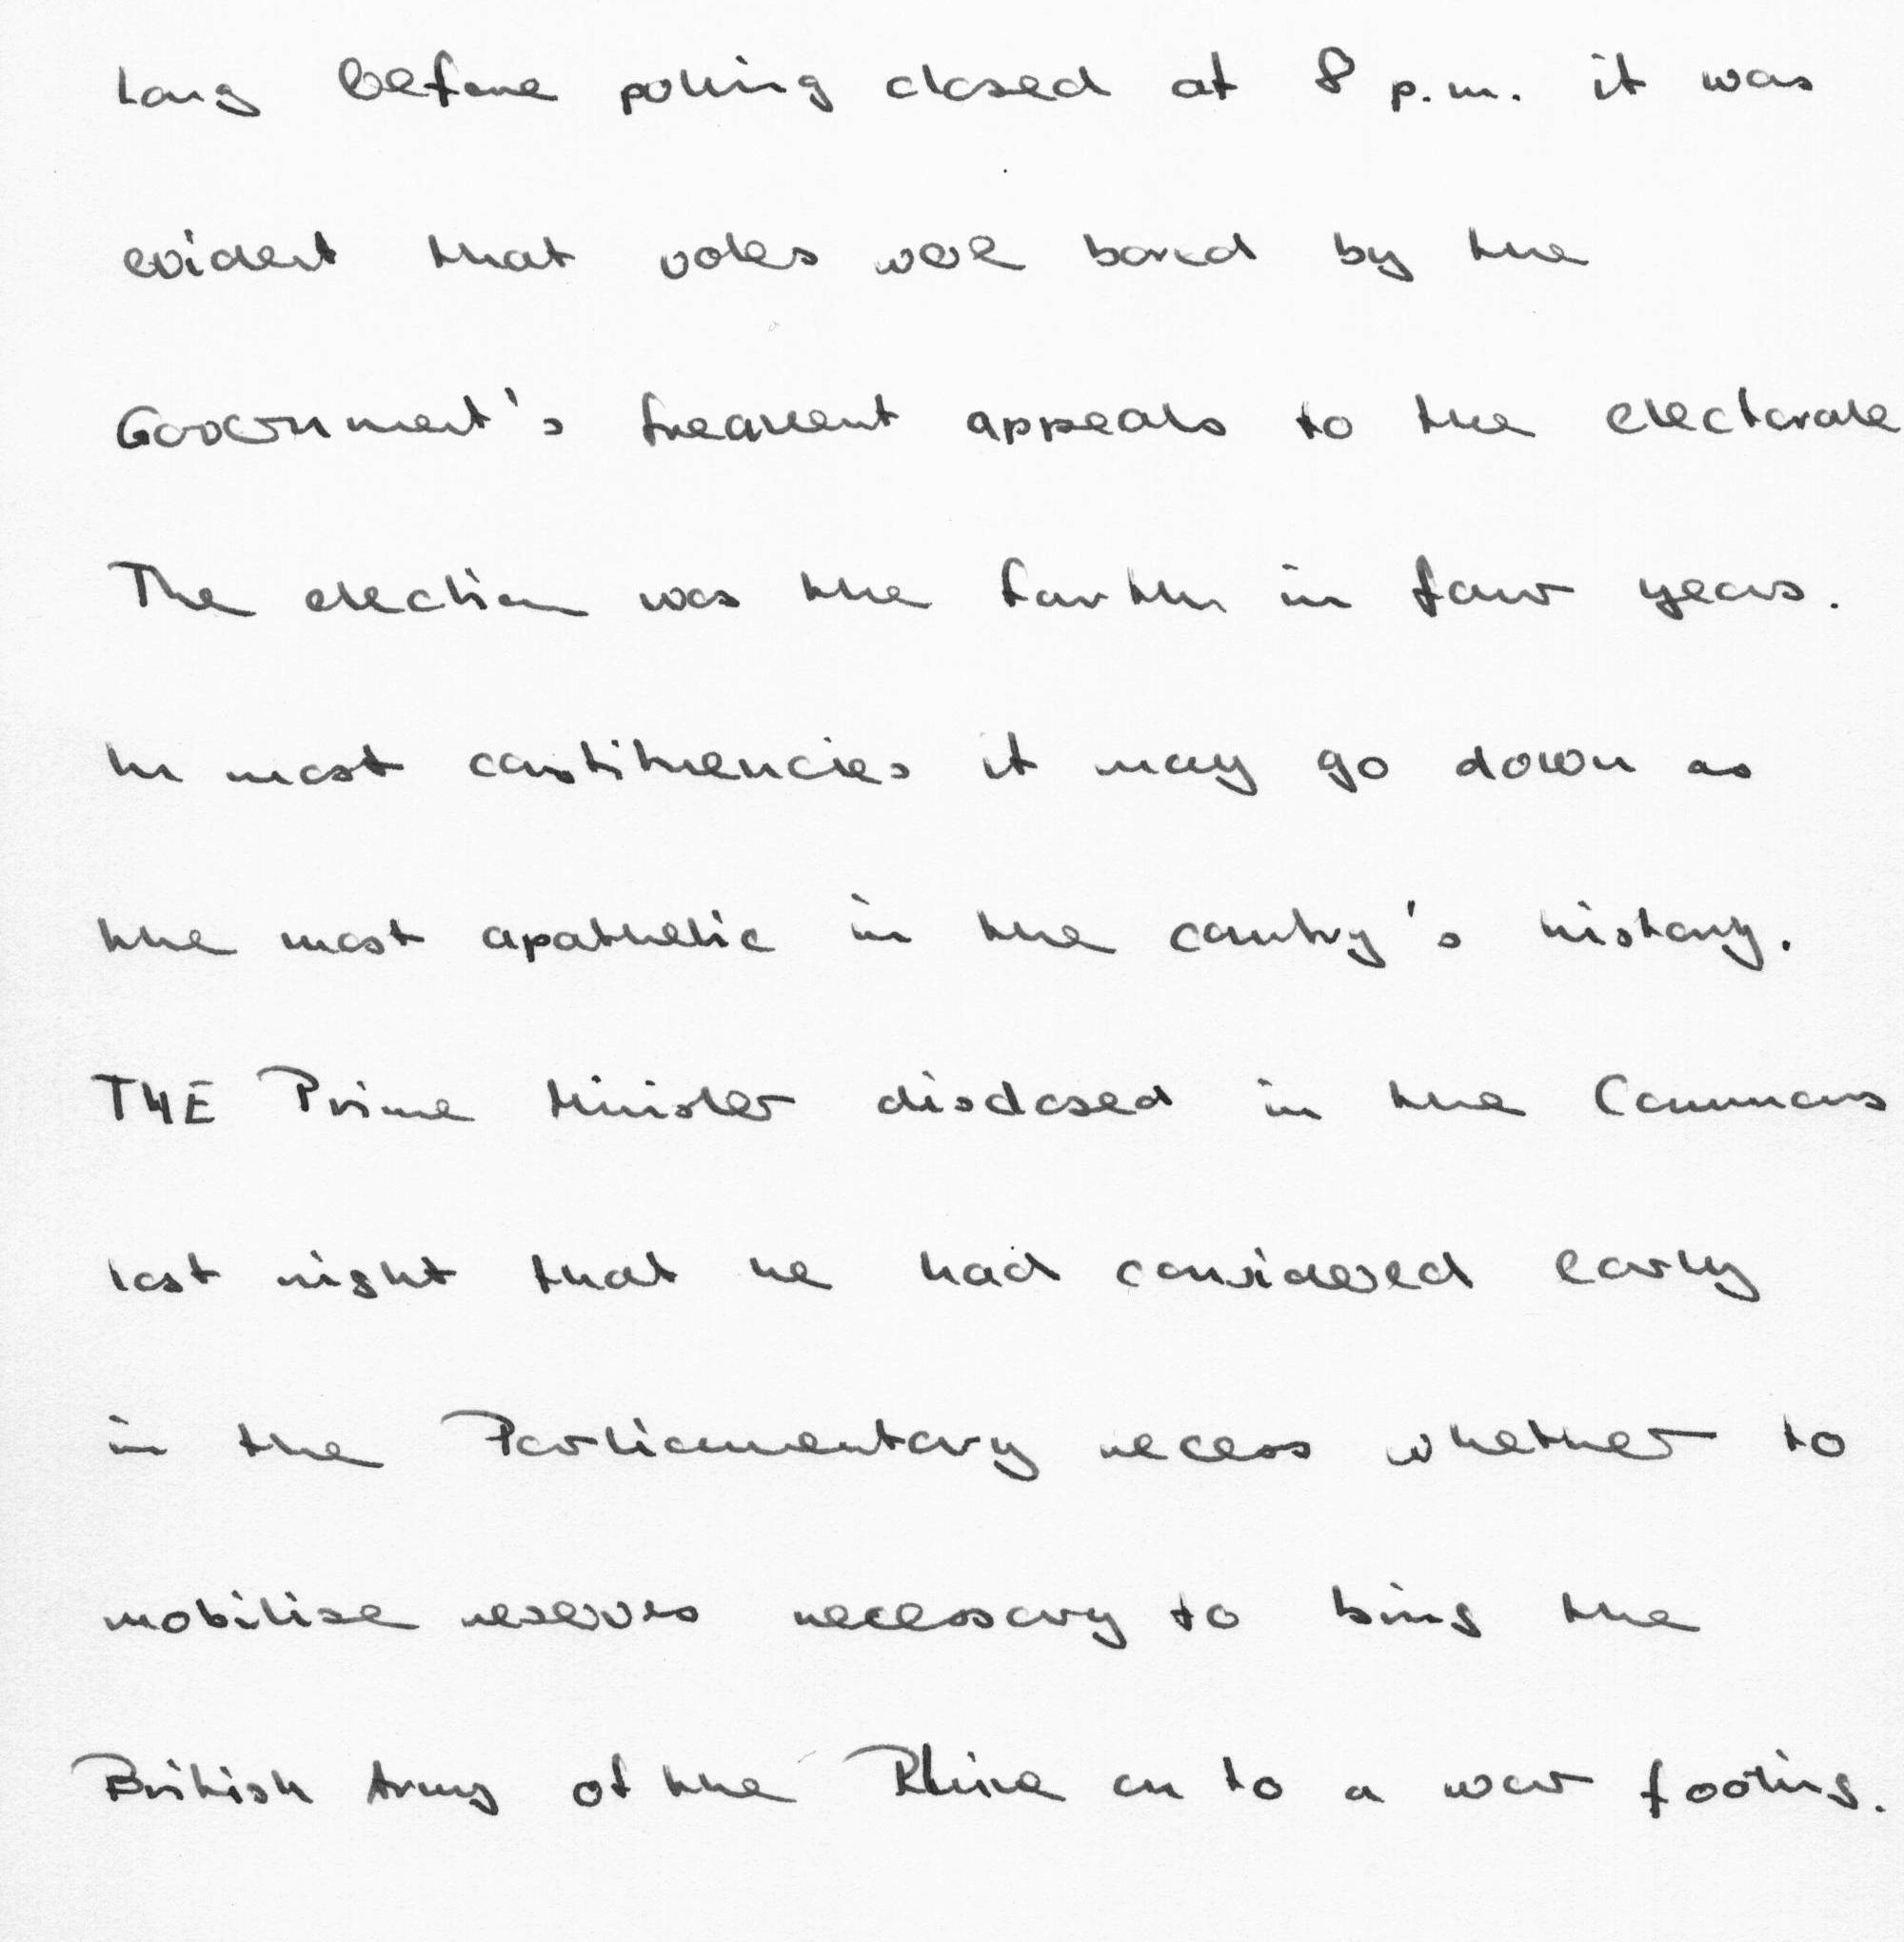 long before polling closed at 8 p.m. it was
evident that voters were bored by the
Government's frequent appeals to the electorate
The election was the fourth in four years.
In most constituencies it may go down as
the most apathetic in the country's history.
THE Prime Minister disclosed in the Commons
last night that he had considered early
in the Parliamentary recess whether to
mobilise reserves necessary to bring the
British Army of the Rhine on to a war footing.